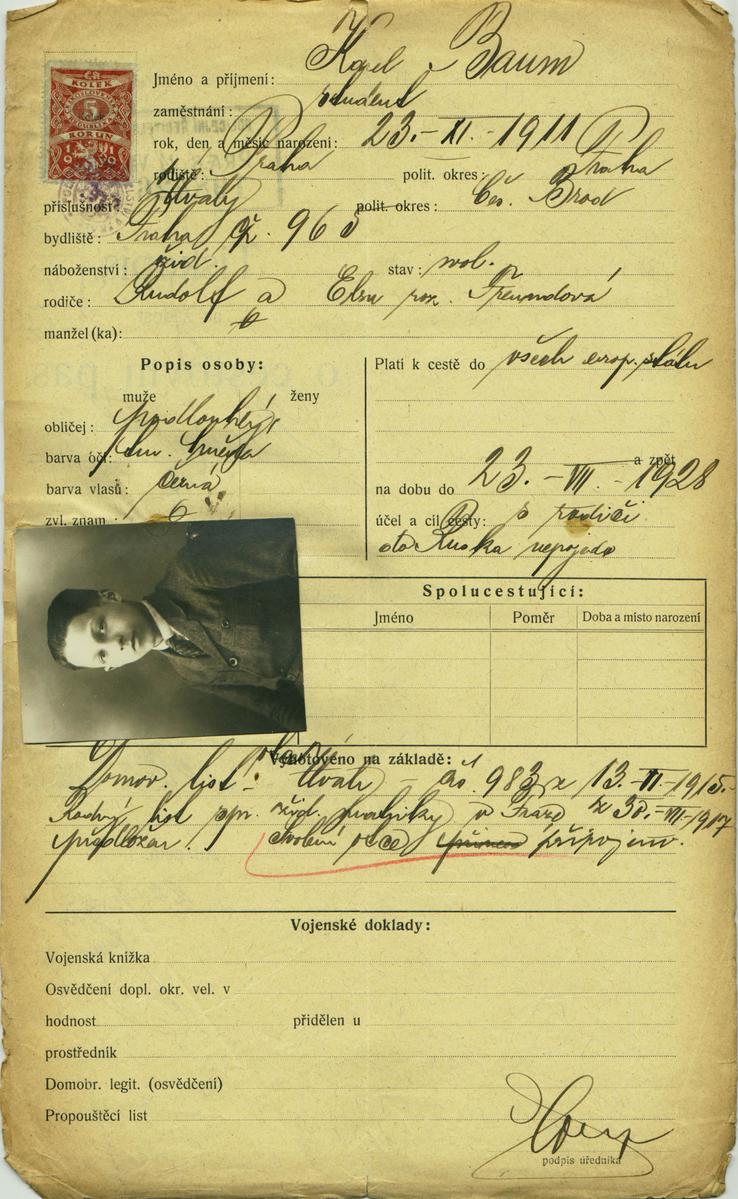 Karel Baum
Jméno a příjmení:
student
zaměstnání:
ČR
KOLEK
5
KORUN
rok, den a měsíc narození: 23.-XI.-1911
rodiště: Praha polit. okres: Praha
příslušnost: Úvaly polit. okres: Čes. Brod
bydliště: Praha 963
náboženství: žid. stav: svob.
rodiče: Rudolf a Elsa roz. Freundová
manžel (ka):
Popis osoby:
muže ženy
obličej: podlouhlý
barva očí: tm. hnědá
barva vlasů: černá
zvl. znam.:
Platí k cestě do všech evrop. států
a zpět
na dobu do 23.-VII.-1928
účel a cíl cesty: s rodiči
do Ruska nepojede
Spolucestující:
Jméno Poměr Doba a místo narození
Vyhotoveno na základě:
Domov. list: Úvaly čís. 983 z 13.-II.-1915.
Rodný list žid. matriky v Praze z 30.-VII-1917
předložen. svolení otce připojeno.
Vojenské doklady:
Vojenská knížka
Osvědčení dopl. okr. vel. v
hodnost přidělen u
prostředník
Domobr. legit. (osvědčení)
Propouštěcí list
podpis úředníka